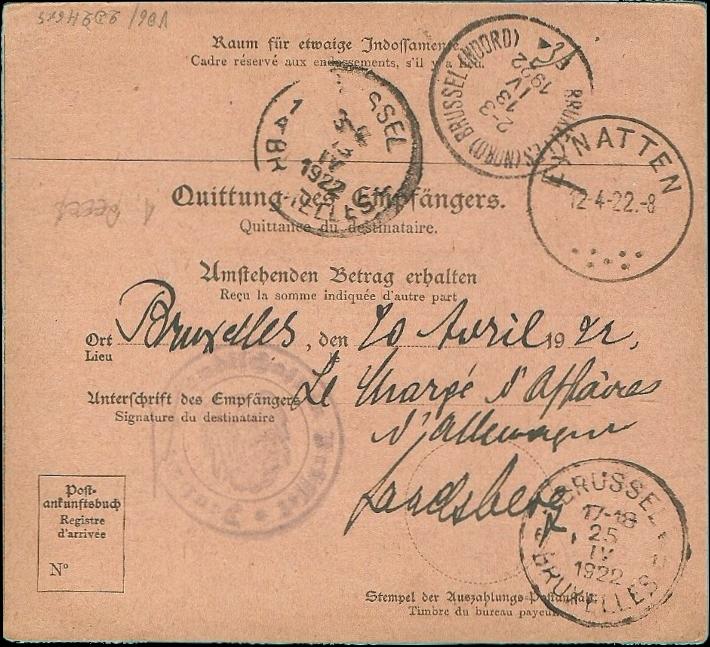 Raum für etwaige Indossamente.
Cadre réservé aux endossements, s'il y a lieu.
BRUSSEL (NOORD) BRUXELLES (NORD)
3B
2-3
13
IV
1922
BRUSSEL
BRUXELLES
1
IV
1922
EYNATTEN
12-4-22.-8
Quittung des Empfängers.
Quittance du destinataire.
Umstehenden Betrag erhalten
Reçu la somme indiquée d'autre part
Ort Bruxelles, den 20 Avril 1922,
Lieu le
Unterschrift des Empfängers Le Chargé d'Affaires
Signature du destinataire
d'Allemagne
Landsberg
Post-
ankunftsbuch
Registre
d'arrivée
N°
BRUSSEL
17-18
25
IV
1922
BRUXELLES
Stempel der Auszahlungs-Postanstalt.
Timbre du bureau payeur.